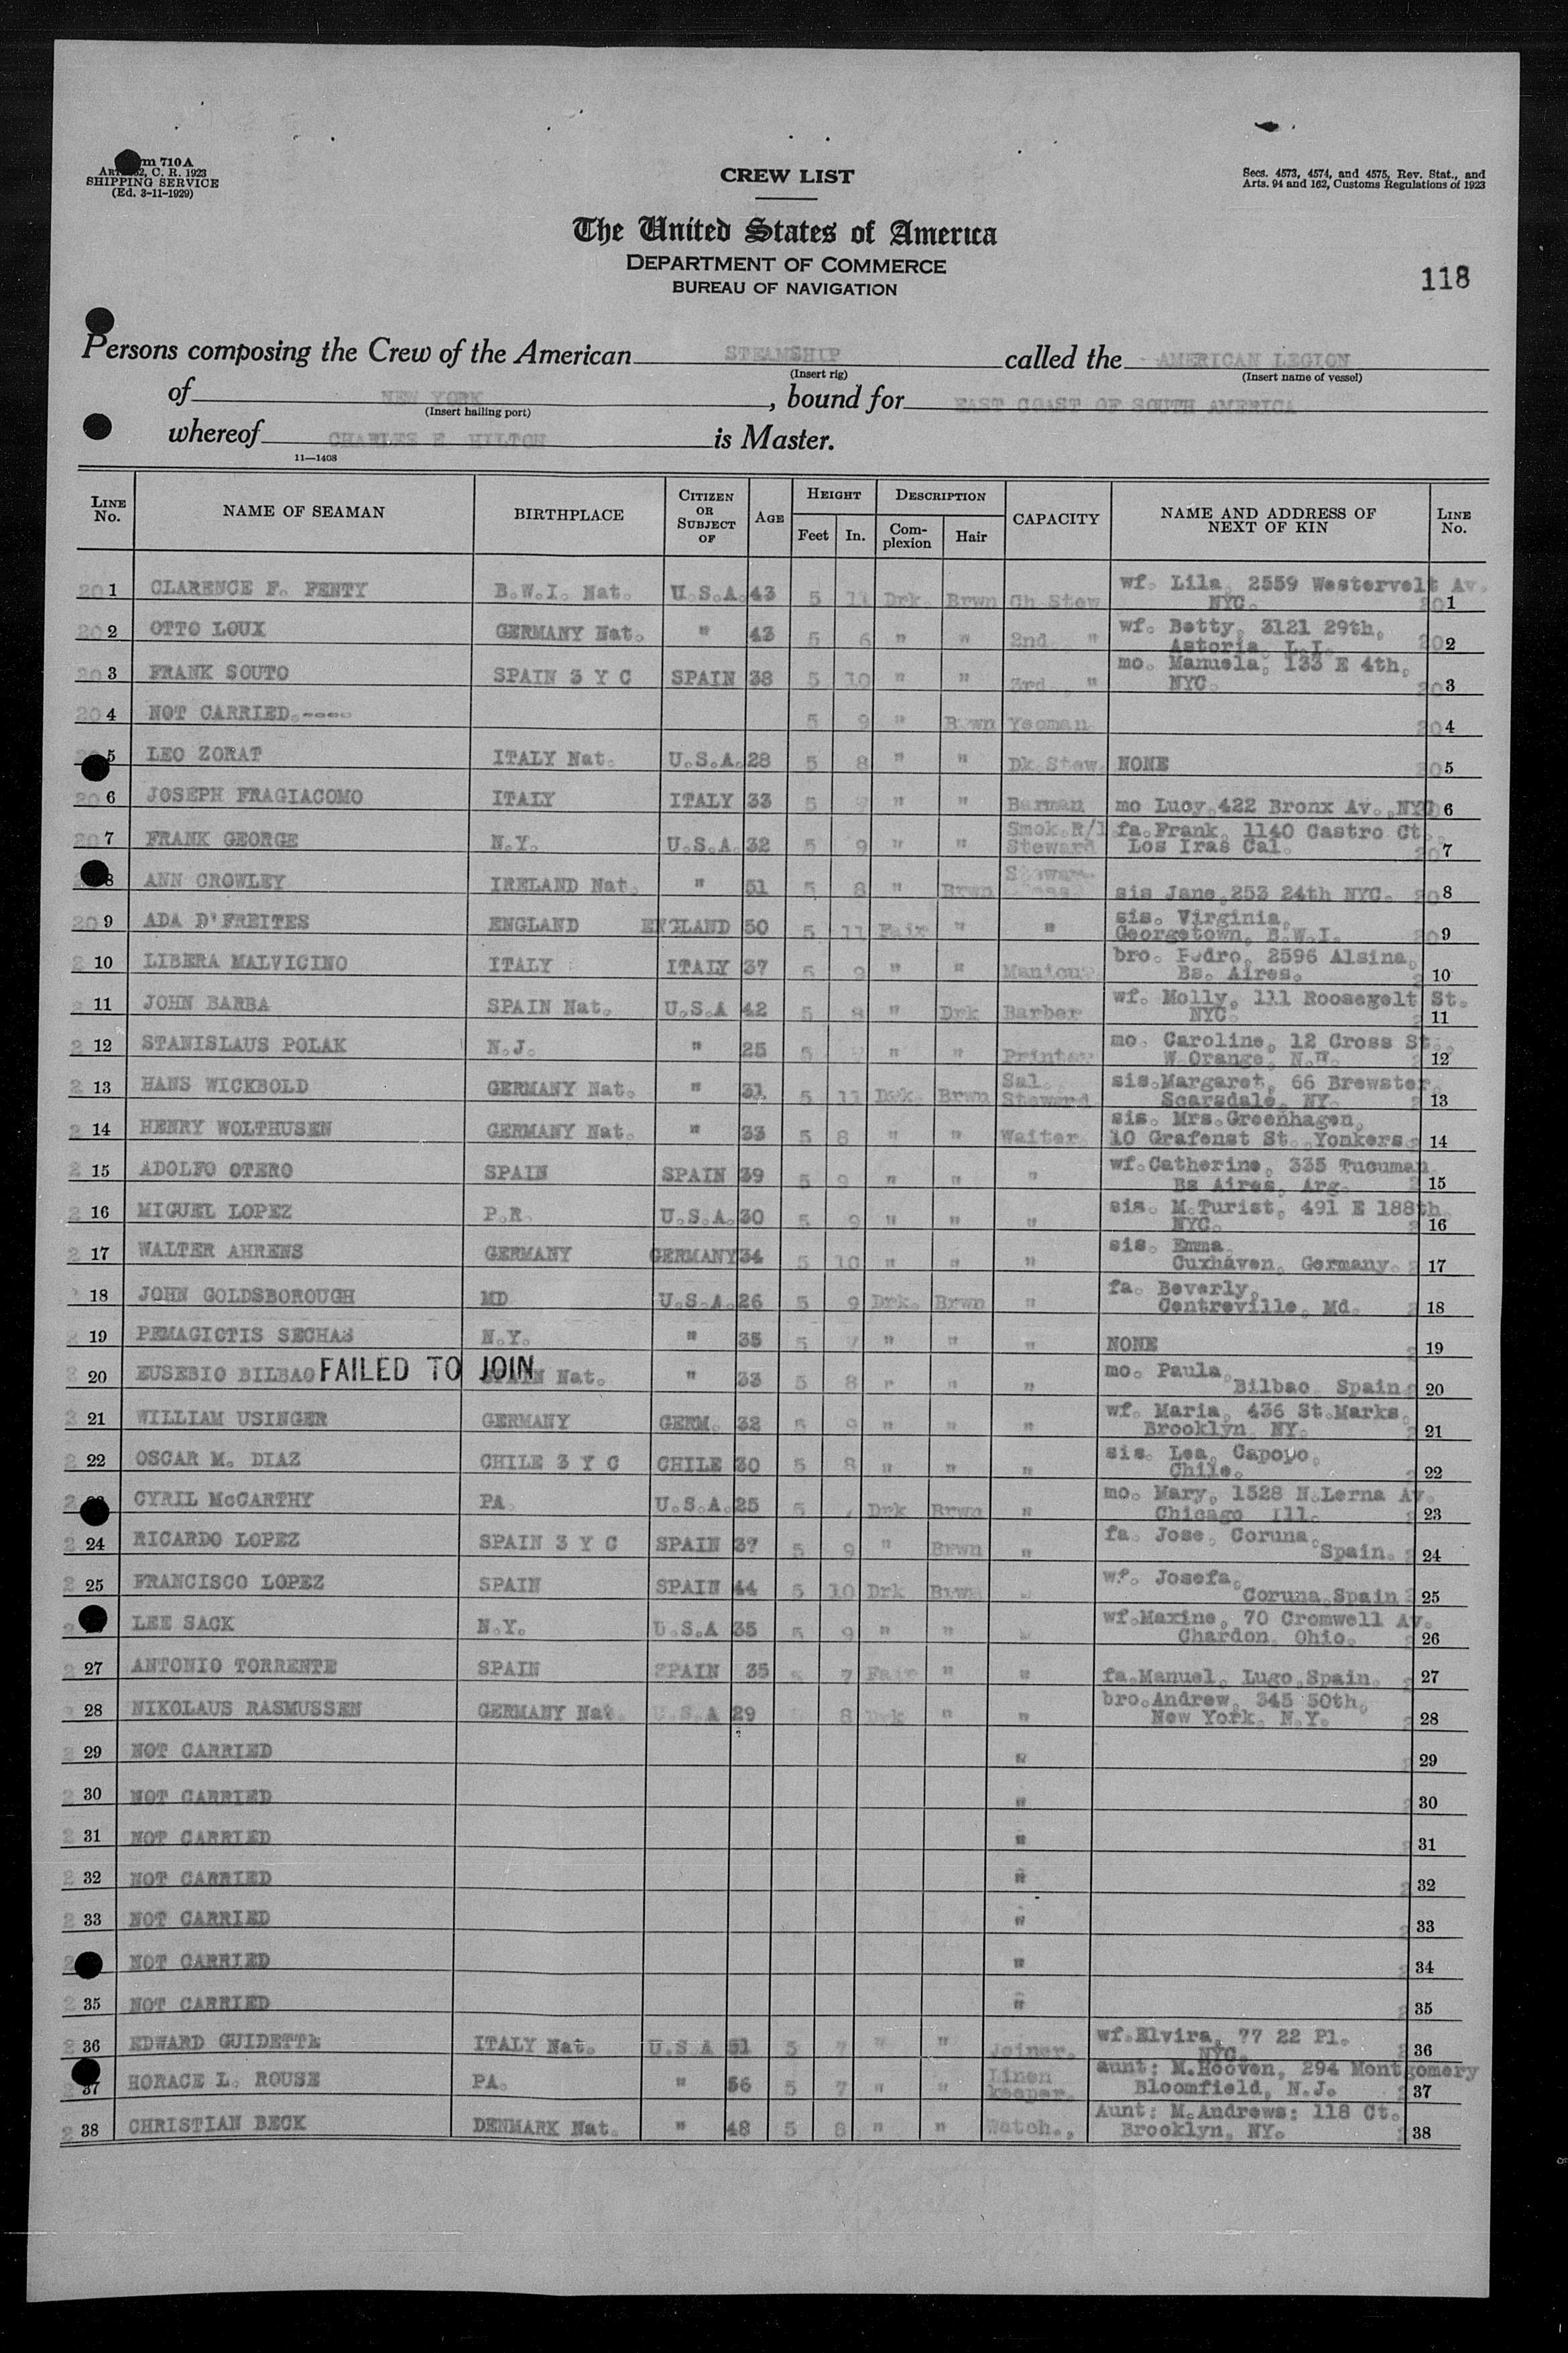 Form 710 A
Art. 92, C. R. 1923
SHIPPING SERVICE
(Ed. 3-11-1929)
CREW LIST
Secs. 4573, 4574, and 4575, Rev. Stat., and
Arts. 94 and 162, Customs Regulations of 1923
The United States of America
DEPARTMENT OF COMMERCE
BUREAU OF NAVIGATION
118
Persons composing the Crew of the American STEAMSHIP called the AMERICAN LEGION
(Insert rig) (Insert name of vessel)
of NEW YORK, bound for EAST COAST OF SOUTH AMERICA
(Insert hailing port)
whereof CHARLES E. HILTON is Master.
11—1408
LINE No. NAME OF SEAMAN BIRTHPLACE CITIZEN OR SUBJECT OF AGE HEIGHT Feet In. DESCRIPTION Complexion Hair CAPACITY NAME AND ADDRESS OF NEXT OF KIN LINE No.
20 1 CLARENCE F. FENTY B.W.I. Nat. U.S.A. 43 5 11 Drk. Brwn Ch Stew wf. Lila, 2559 Westervelt Av. NYC. 20 1
20 2 OTTO LOUX GERMANY Nat. " 43 5 6 " " 2nd " wf. Betty, 3121 29th, Astoria, L.I. 20 2
20 3 FRANK SOUTO SPAIN 3 Y C SPAIN 38 5 10 " " 3rd. " mo. Manuela, 133 E 4th, NYC. 20 3
20 4 NOT CARRIED.---- 5 9 " Brwn Yeoman 20 4
5 LEO ZORAT ITALY Nat. U.S.A. 28 5 8 " " Dk Stew. NONE 20 5
20 6 JOSEPH FRAGIACOMO ITALY ITALY 33 5 7 " " Barman mo Lucy 422 Bronx Av. NYC 6
20 7 FRANK GEORGE N.Y. U.S.A. 32 5 9 " " Smok.R/1 Steward fa.Frank, 1140 Castro Ct. Los Iras Cal. 20 7
8 ANN CROWLEY IRELAND Nat. " 51 5 8 " Brwn sis Jane 253 24th NYC. 20 8
20 9 ADA D'FREITES ENGLAND ENGLAND 50 5 11 Fair " " sis. Virginia, Georgetown, B.W.I. 20 9
2 10 LIBERA MALVICINO ITALY ITALY 37 5 9 " " Manicur. bro. Pedro, 2596 Alsina, Bs. Aires. 2 10
2 11 JOHN BARBA SPAIN Nat. U.S.A 42 5 8 " Drk Barber wf. Molly, 111 Roosegelt St. NYC. 2 11
2 12 STANISLAUS POLAK N.J. " 25 5 7 " " Printer mo. Caroline, 12 Cross St. W Orange, 2 12
2 13 HANS WICKBOLD GERMANY Nat. " 31 5 11 Drk. Brwn Sal. Steward sis.Margaret, 66 Brewster, Scarsdale, NY. 2 13
2 14 HENRY WOLTHUSEN GERMANY Nat. " 33 5 8 " " Waiter sis. Mrs.Greenhagen, 10 Grafenst St. Yonkers. 2 14
2 15 ADOLFO OTERO SPAIN SPAIN 39 5 9 " " " wf.Catherine, 335 Tucuman Bs Aires, Arg. 15
2 16 MIGUEL LOPEZ P.R. U.S.A. 30 5 9 " " " sis. M.Turist, 491 E 188th NYC. 2 16
2 17 WALTER AHRENS GERMANY GERMANY 34 5 10 " " " sis. Emma Cuxhaven, Germany. 2 17
18 JOHN GOLDSBOROUGH MD U.S.A. 26 5 9 Drk. Brwn " fa. Beverly, Centreville, Md. 2 18
2 19 PEMAGIOTIS SECHAS N.Y. " 35 5 7 " " " NONE 2 19
2 20 EUSEBIO BILBAO FAILED TO JOIN SPAIN Nat. " 33 5 8 " " " mo. Paula, Bilbao Spain 2 20
2 21 WILLIAM USINGER GERMANY GERM. 32 5 9 " " " wf. Maria, 436 St.Marks, Brooklyn NY. 2 21
2 22 OSCAR M. DIAZ CHILE 3 Y C CHILE 30 5 8 " " " sis. Lea, Capopo, Chile. 2 22
2 CYRIL McCARTHY PA. U.S.A. 25 5 7 Drk Brwn " mo. Mary, 1528 N.Lerna Av. Chicago Ill. 2 23
2 24 RICARDO LOPEZ SPAIN 3 Y C SPAIN 37 5 9 " Brwn " fa. Jose, Coruna, Spain. 2 24
2 25 FRANCISCO LOPEZ SPAIN SPAIN 44 5 10 Drk Brwn " wf. Josefa, Coruna Spain 2 25
2 LEE SACK N.Y. U.S.A 35 5 9 " " " wf.Maxine, 70 Cromwell Av. Chardon, Ohio. 2 26
2 27 ANTONIO TORRENTE SPAIN SPAIN 35 5 7 Fair " " fa.Manuel, Lugo Spain 2 27
28 NIKOLAUS RASMUSSEN GERMANY Nat. U.S.A 29 8 Drk " " bro.Andrew, 345 50th, New York, N.Y. 2 28
2 29 NOT CARRIED " 29
2 30 NOT CARRIED " 30
2 31 NOT CARRIED " 31
2 32 NOT CARRIED " 32
2 33 NOT CARRIED " 33
2 NOT CARRIED " 34
2 35 NOT CARRIED " 35
2 36 EDWARD GUIDETTE ITALY Nat. U.S.A 51 5 7 " " Joiner. wf.Elvira, 77 22 Pl. NYC. 2 36
37 HORACE L. ROUSE PA. " 56 5 7 " " Linen keeper. aunt: M.Hooven, 294 Montgomery Bloomfield, N.J. 2 37
2 38 CHRISTIAN BECK DENMARK Nat. " 48 5 8 " " Watch., Aunt: M.Andrews: 118 Ct. Brooklyn, NY. 2 38